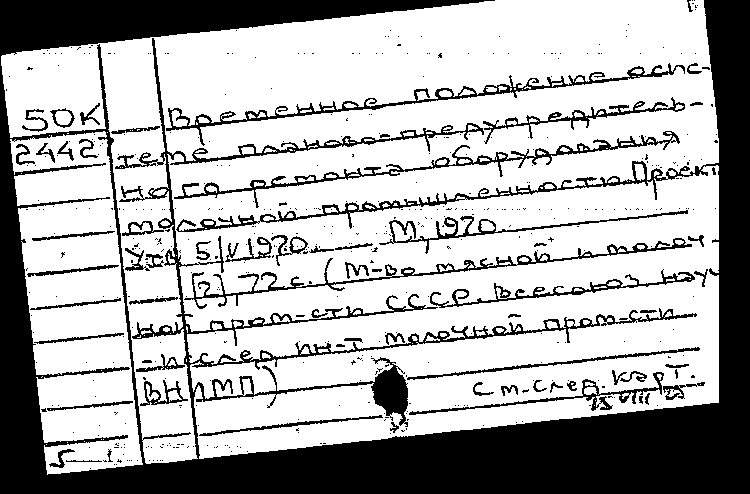 50К Временное положение осис-
24427 теме планово-предупредитель-
ного ремонта оборудования
молочной промышленности Проект
Утв 5/V 1970 М, 1970
[2], 72 с. (М-во мясной и молоч-
ной пром-сти СССР. Всесоюз науч
-исслед ин-т молочной пром-сти
ВНИМП)
См-след. карт.
5